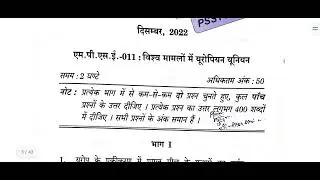 PSSI
दिसम्बर, 2022
एम.पी.एस.ई.-011 : विश्व मामलों में यूरोपियन यूनियन
समय : 2 घण्टे अधिकतम अंक : 50
नोट : प्रत्येक भाग में से कम-से-कम दो प्रश्न चुनते हुए, कुल पाँच
प्रश्नों के उत्तर दीजिए। प्रत्येक प्रश्न का उत्तर लगभग 400 शब्दों
में दीजिए। सभी प्रश्नों के अंक समान हैं।
भाग I